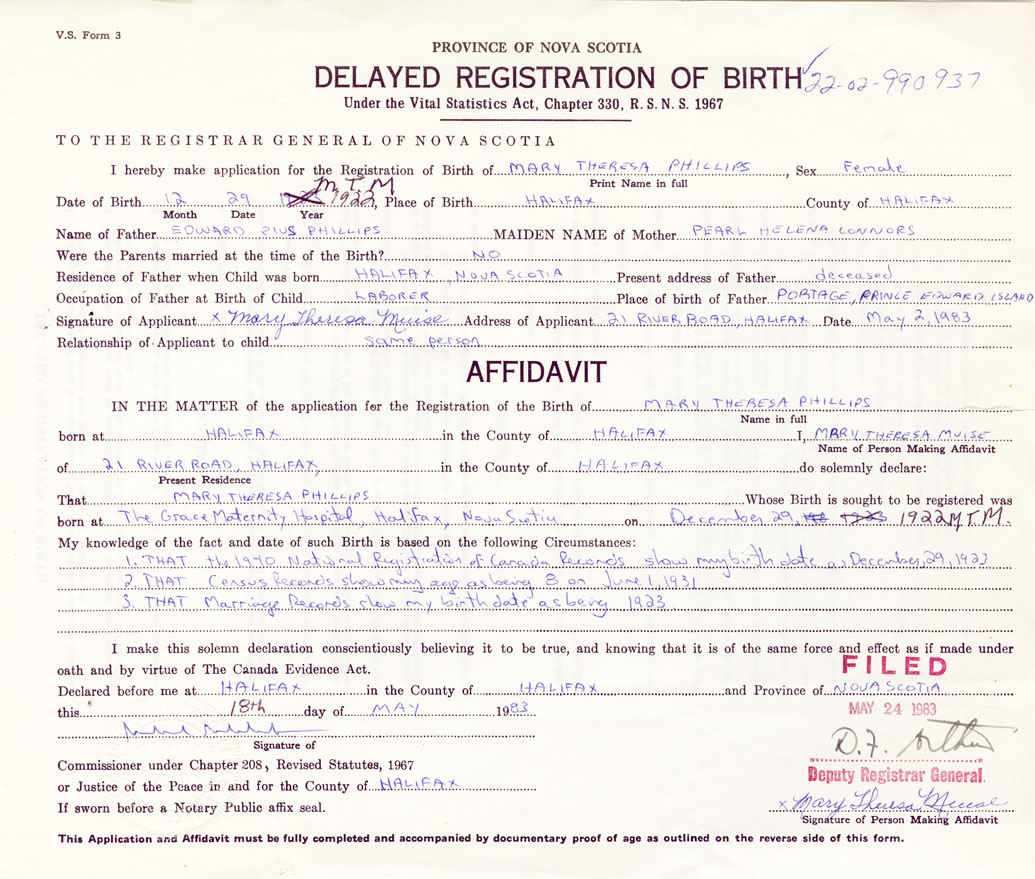 V.S. Form 3
PROVINCE OF NOVA SCOTIA
DELAYED REGISTRATION OF BIRTH 22-02-990937
Under the Vital Statistics Act, Chapter 330, R. S. N. S. 1967
TO THE REGISTRAR GENERAL OF NOVA SCOTIA
I hereby make application for the Registration of Birth of MARY THERESA PHILLIPS, Sex Female
Print Name in full
M.T.M
Date of Birth 12 29 1922, Place of Birth HALIFAX County of HALIFAX
Month Date Year
Name of Father EDWARD PIUS PHILLIPS MAIDEN NAME of Mother PEARL HELENA CONNORS
Were the Parents married at the time of the Birth? NO
Residence of Father when Child was born HALIFAX, NOVA SCOTIA Present address of Father deceased
Occupation of Father at Birth of Child LABORER Place of birth of Father PORTAGE, PRINCE EDWARD ISLAND
Signature of Applicant x Mary Theresa Muise Address of Applicant 21 RIVER ROAD, HALIFAX Date May 2, 1983
Relationship of Applicant to child same person
AFFIDAVIT
IN THE MATTER of the application for the Registration of the Birth of MARY THERESA PHILLIPS
Name in full
born at HALIFAX in the County of HALIFAX I, MARY THERESA MUISE
Name of Person Making Affidavit
of 21 RIVER ROAD, HALIFAX, in the County of HALIFAX do solemnly declare:
Present Residence
That MARY THERESA PHILLIPS Whose Birth is sought to be registered was
born at The Grace Maternity Hospital, Halifax, Nova Scotia on December 29, 1923 1922 M.T.M.
My knowledge of the fact and date of such Birth is based on the following Circumstances:
1. THAT the 1940 National Registration of Canada Records show my birth date as December, 29, 1922
2. THAT Census Records show my age as being 8 on June 1, 1931
3. THAT Marriage Records show my birthdate as being 1923
I make this solemn declaration conscientiously believing it to be true, and knowing that it is of the same force and effect as if made under
oath and by virtue of The Canada Evidence Act.
FILED
Declared before me at HALIFAX in the County of HALIFAX and Province of NOVA SCOTIA
this 18th day of MAY 1983
MAY 24 1983
D.F. Arthur
Signature of
Commissioner under Chapter 208, Revised Statutes, 1967
Deputy Registrar General
or Justice of the Peace in and for the County of HALIFAX
x Mary Theresa Muise
If sworn before a Notary Public affix seal.
Signature of Person Making Affidavit
This Application and Affidavit must be fully completed and accompanied by documentary proof of age as outlined on the reverse side of this form.